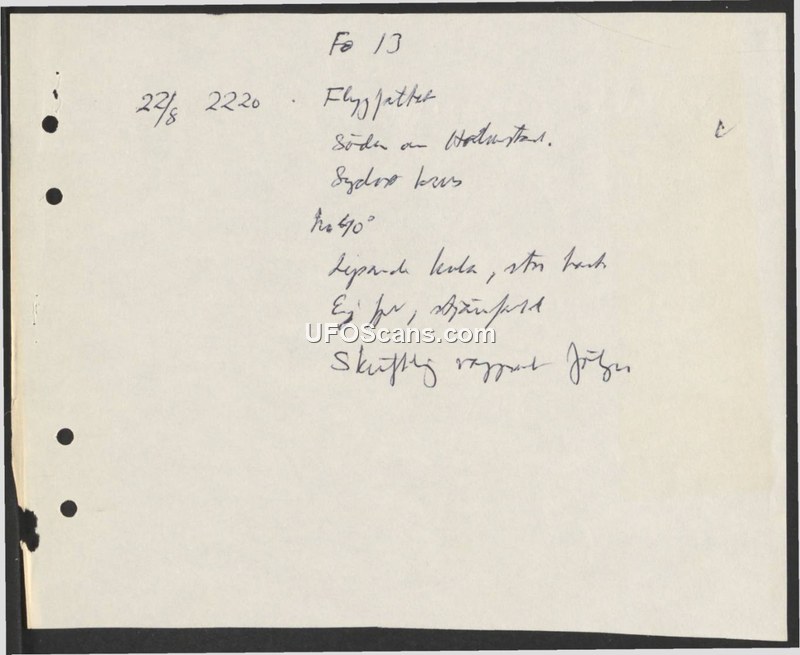 Fo 13
22/8 2220 . Flygfältet
Söder om Halmstad.
Sydost kurs
h. 40°
Lysande kula, stor hast
Ej fpl, stjärnfall
UFOScans.com
Skriftlig rapport följer